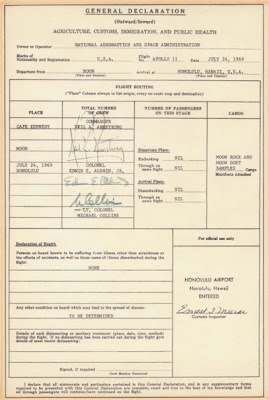 GENERAL DECLARATION
(Outward/Inward)
AGRICULTURE, CUSTOMS, IMMIGRATION, AND PUBLIC HEALTH
Owner or Operator NATIONAL AERONAUTICS AND SPACE ADMINISTRATION
Marks of Nationality and Registration U.S.A. Flight No. APOLLO 11 Date JULY 24, 1969
Departure from MOON (Place and Country) Arrival at HONOLULU, HAWAII, U.S.A. (Place and Country)
FLIGHT ROUTING
("Place" Column always to list origin, every en-route stop and destination)
PLACE
TOTAL NUMBER OF CREW
NUMBER OF PASSENGERS ON THIS STAGE
CARGO
CAPE KENNEDY
COMMANDER
NEIL A. ARMSTRONG
MOON
Departure Place:
Embarking NIL
Through on same flight NIL
MOON ROCK AND
MOON DUST
SAMPLES
Cargo
Manifests Attached
JULY 24, 1969
HONOLULU
COLONEL
EDWIN E. ALDRIN, JR.
Arrival Place:
Disembarking NIL
Through on same flight NIL
LT. COLONEL
MICHAEL COLLINS
Declaration of Health
For official use only
Persons on board known to be suffering from illness other than airsickness or the effects of accidents, as well as those cases of illness disembarked during the flight:
NONE
HONOLULU AIRPORT
Honolulu, Hawaii
ENTERED
Customs Inspector
Any other condition on board which may lead to the spread of disease:
TO BE DETERMINED
Details of each disinsecting or sanitary treatment (place, date, time, method) during the flight. If no disinsecting has been carried out during the flight give details of most recent disinsecting:
Signed, if required
Crew Member Concerned
I declare that all statements and particulars contained in this General Declaration, and in any supplementary forms required to be presented with this General Declaration are complete, exact and true to the best of my knowledge and that all through passengers will continue/have continued on the flight.